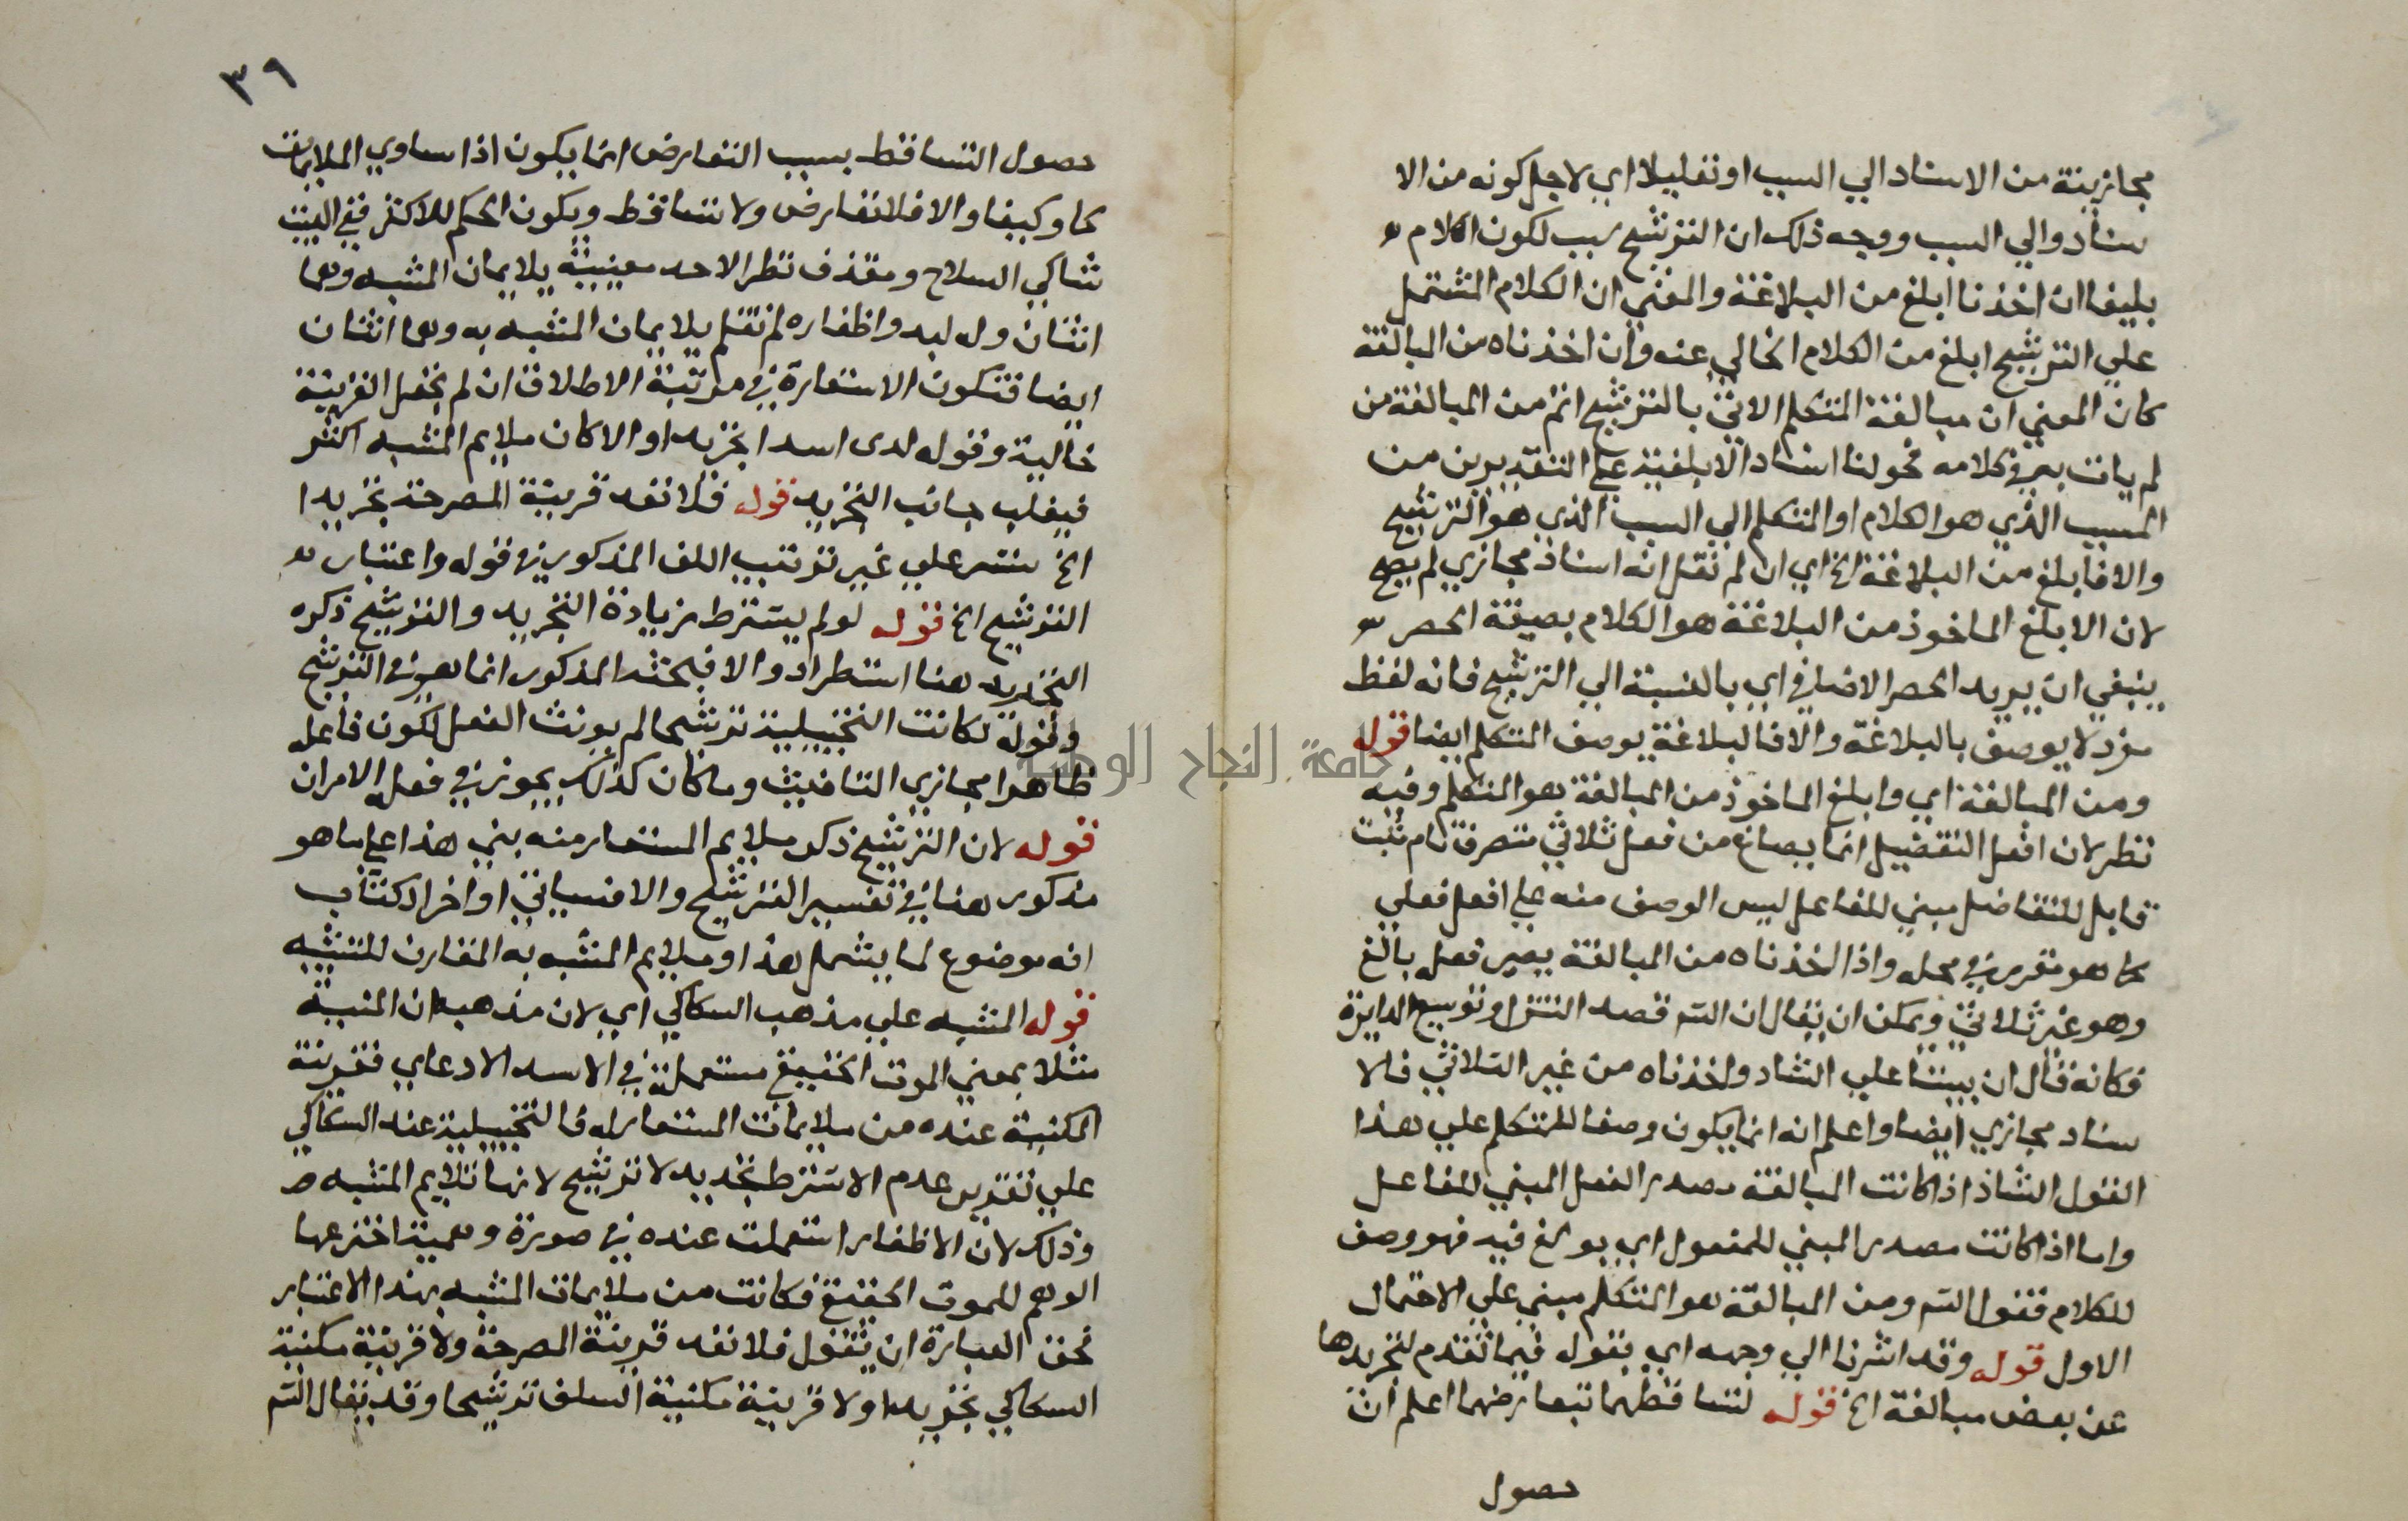 مجازيته من الاسناد الي السبب او تعليلا اي لاجل كونه من الا
سناد والي السبب ووجه ذلك ان الترشيح سبب لكون الكلام
بليغا ان اخذنا ابلغ من البلاغة والمعني ان الكلام المشتمل
علي الترشيح ابلغ من الكلام الخالي عنه وان اخذناه من المبالغة
كان المعني ان مبالغة المتكلم الاتي بالترشيح اتم من المبالغة من
لم يات به في كلامه نحولنا اسناد الابلغية علي التقديرين من
المسبب الذي هو الكلام او المتكلم الي السبب الذي هو الترشيح
والا فابلغ من البلاغة الخ اي ان لم نقل انه اسناد مجازي لم يصح
لان الابلغ الماخوذ من البلاغة هو الكلام بصيغة الحصر
ينبغي ان يريد الحصر الاضافي اي بالنسبة الي الترشيح فانه لفظ
مفرد لا يوصف بالبلاغة والا فالبلاغة يوصف المتكلم ايضا قوله
ومن المبالغة اي وابلغ الماخوذ من المبالغة هو المتكلم وفيه
نظر لان افعل التفضيل انما يصاغ من فعل ثلاثي متصرف تام مثبت
قابل للتفاضل مبني للفاعل ليس الوصف منه علي افعل فعلي
كما هو مقرر في محله واذا اخذناه من المبالغة يصير فعله بالغ
وهو غير ثلاثي ويمكن ان يقال ان الشم قصد التنزل وتوسيع الدايرة
فكانه قال ان بيننا علي الشاد واخذناه من غير الثلاثي فالا
سناد مجازي ايضا واعلم انه انما يكون وصفا للمتكلم علي هذا
القول الشاذ اذا كانت المبالغة مصدر الفعل المبني للفاعل
واما اذا كانت مصدر المبني للمفعول اي بولغ فيه فهو وصف
للكلام فقول الشم ومن المبالغة هو المتكلم مبني علي الاحتمال
الاول قوله وقد اشرنا الي وجهه اي بقوله فيما تقدم لتجريدها
عن بعض مبالغة الخ قوله لتساقطهما بتعارضهما اعلم ان
حصول
٣٩
حصول التساقط بسبب التعارض انما يكون اذا ساوي الملايمات
كما وكيفا والا فلا تعارض ولا تساقط ويكون الحكم للاكثر ففي البيت
شاكي السلاح ومقذف نظر الاحد معنييه يلايمان المشبه وهما
اثنان وله لبد واظفاره لم تقلم يلايمان المشبه به وهما اثنان
ايضا فتكون الاستعارة في مرتبة الاطلاق ان لم نجعل القرينة
حالية وقوله لدي اسد تجريد او الا كان ملايم المشبه اكثر
فيغلب جانب التجريد قوله فلا تعد قرينة المصرحة تجريدا
الخ نشر علي غير ترتيب اللف المذكور في قوله واعتبار
الترشيح الخ قوله لو لم يشترط زيادة التجريد والترشيح ذكره
التجريد هنا استطراد والا فبحثه المذكور انما هو في الترشيح
وقوله لكانت التخييلية ترشيحا لم يونث الفعل لكون فاعله
ظاهرا مجازي التانيث وما كان كذلك يجوز في فعله الامران
قوله لان الترشيح ذكر ملايم المستعار منه بني هذا علي ما هو
مذكور هنا في تفسير الترشيح والا فسياتي اواخر الكتاب
انه موضوع لما يشمل هذا وملايم المشبه به المقارن للتشبيه
قوله المشبه علي مذهب السكاكي اي لان مذهبه ان المنية
مثلا بمعني الموت الحقيقي مستعملة في الاسد الادعاي فقرينة
المكنية عنده من ملايمات المستعار له فالتخييلية عند السكاكي
علي تقدير عدم الاشتراط تجريد لا ترشيح لانها تلايم المشبه
وذلك لان الاظفار استعملت عنده في صورة وهمية اخترعها
الوهم للموت الحقيقي فكانت من ملايمات المشبه بهذا الاعتبار
فحق العبارة ان يقول فلا تعد قرينة المصرحة ولا قرينة مكنية
السكاكي تجريدا ولا قرينة مكنية السلف ترشيحا وقد يقال الشم
جامعة النجاح الوطنية